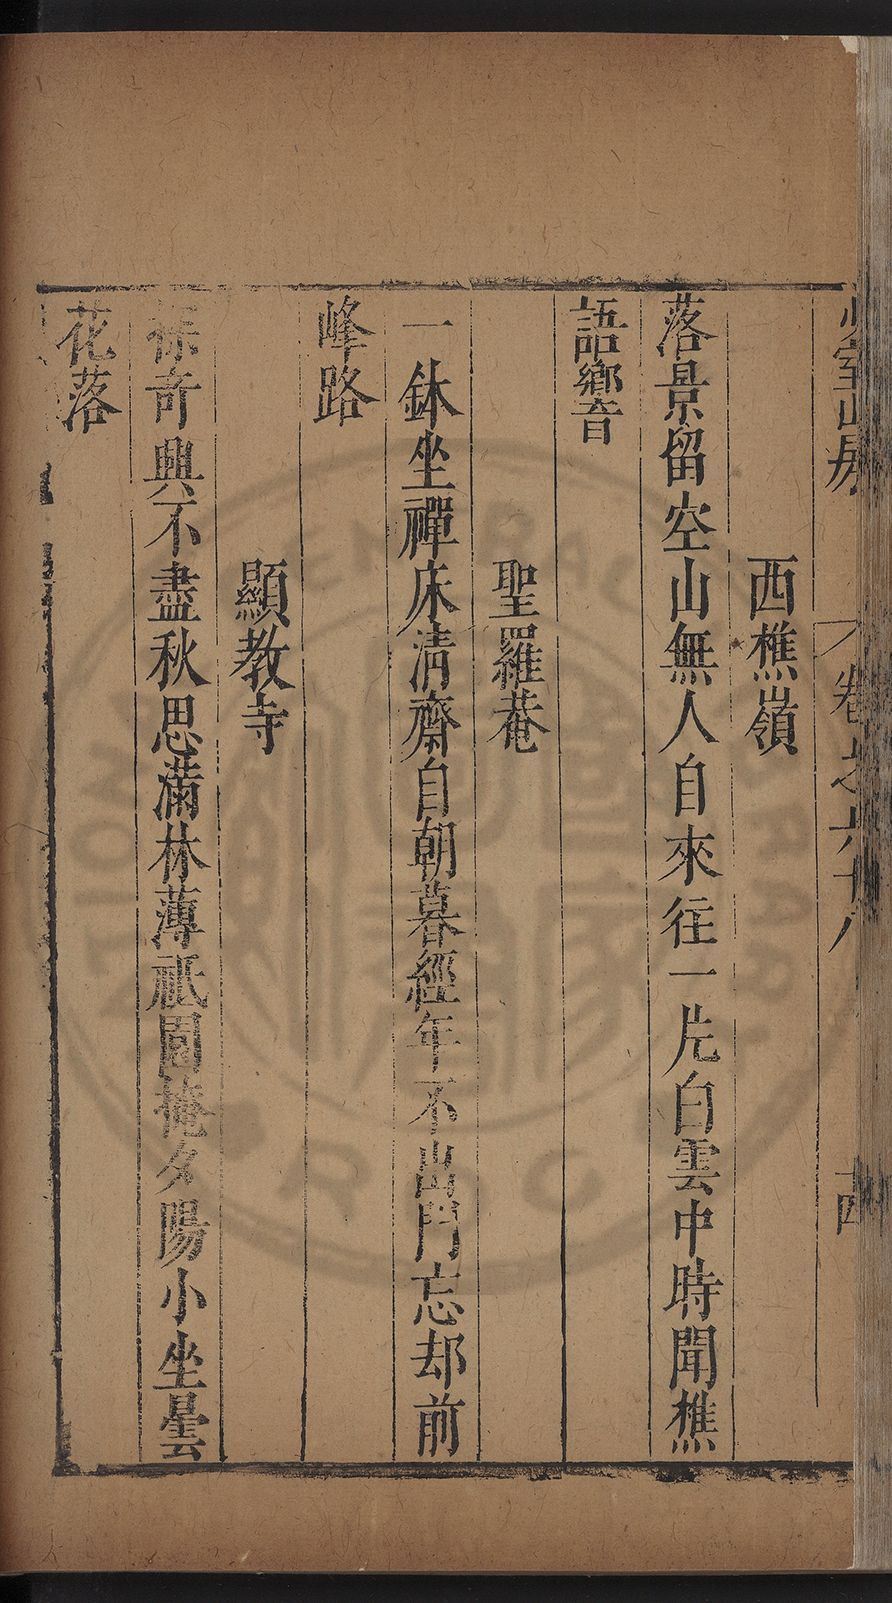 卷之六十八
西樵嶺
落景留空山無人自來往一片白雲中時聞樵
語響
聖羅菴
一鉢坐禪床清齋自朝暮經年不出門忘却前
峰路
顯教寺
奇興不盡秋思滿林薄祇園掩夕陽小坐曇
花落